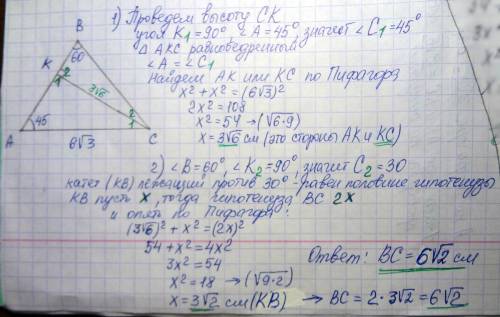 1) Проведем высоту СК
угол K₁=90°, ∠A=45°, значит ∠C₁=45°
△ АКС равнобедренный
∠A = ∠C₁
Найдем АК или КС по Пифагору
x² + x² = (6√3)²
2x² = 108
x² = 54 → (√6·9)
x = 3√6 см (это стороны АК и КС)
B
60
K
2
1
3√6
2
1
A
45
6√3
C
2) ∠B=60°, ∠K₂=90°, значит C₂=30
катет (КВ) лежащий против 30° - равен половине гипотенузы
КВ пусть x, тогда гипотенуза BC 2x
и опять по Пифагору:
(3√6)² + x² = (2x)²
54 + x² = 4x²
3x² = 54
x² = 18 → (√9·2)
x = 3√2 см (КВ) → BC = 2·3√2 = 6√2
Ответ: BC = 6√2 см